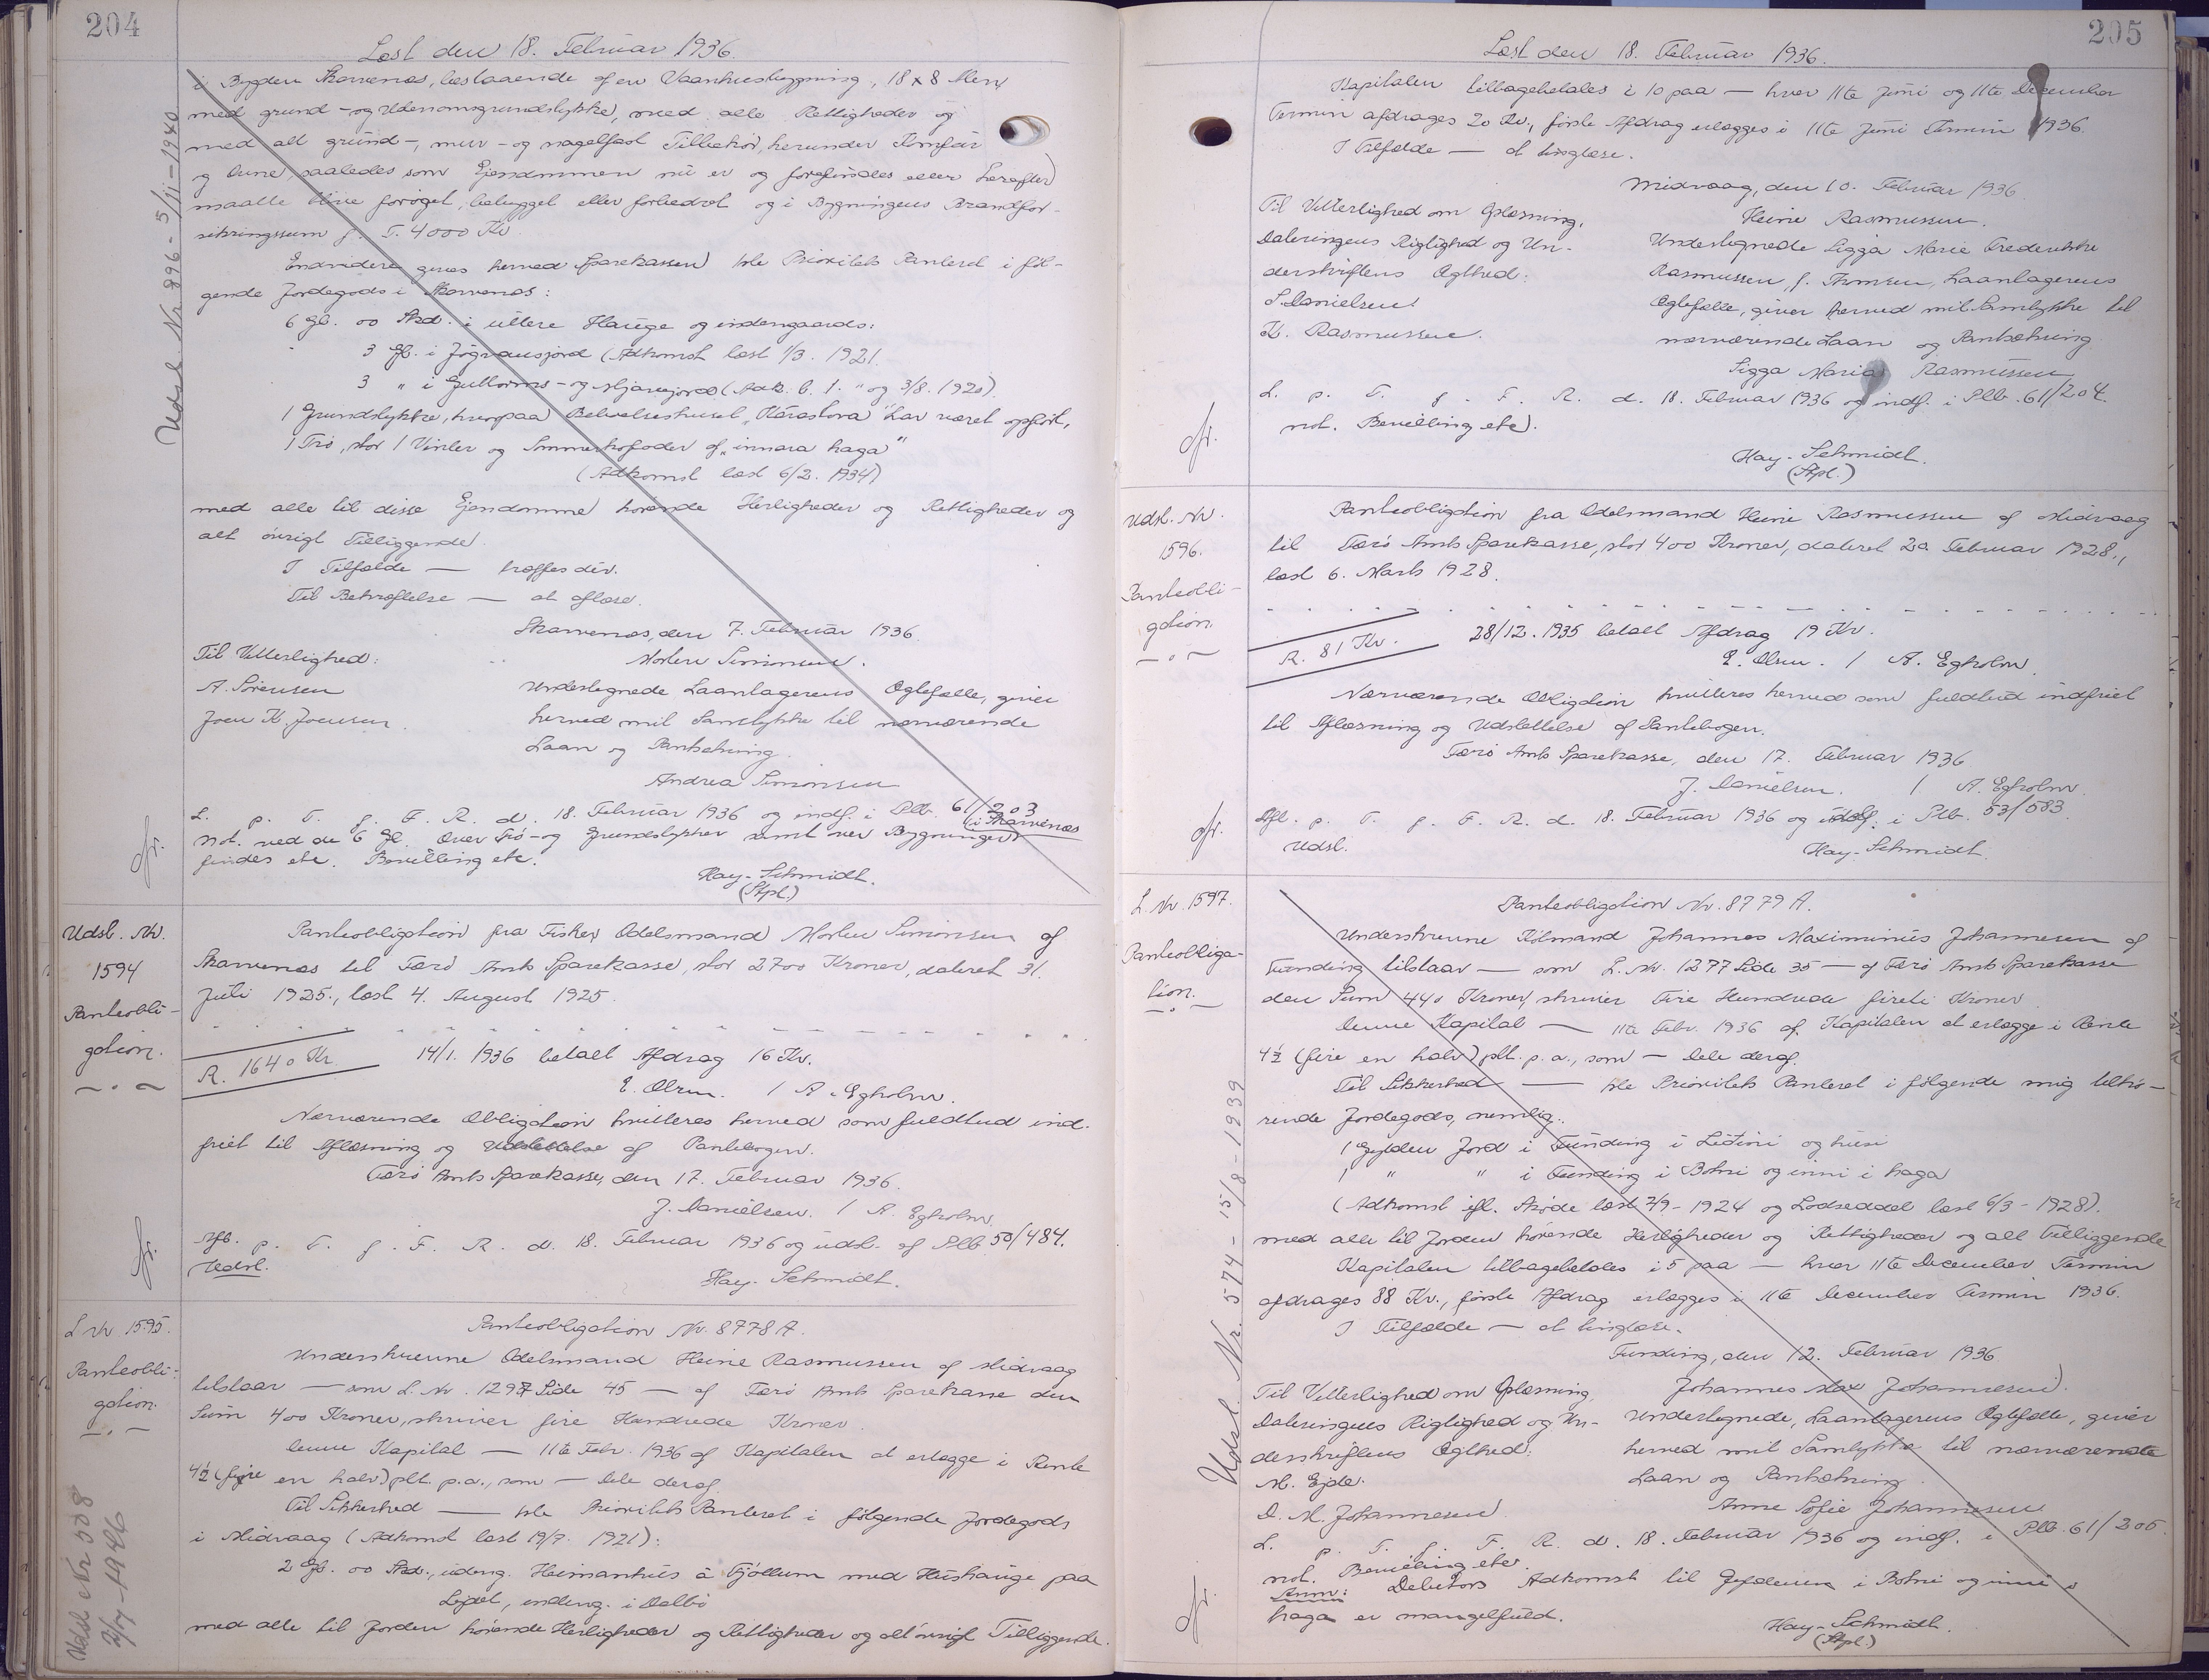 204
Læst den 18. Februar 1936.
i Bygden Skarvenæs, bestaaende af en Vaaningshusbygning, 18 x 8 Alen,
med grund- og Udenomsgrundstykke, med alle Rettigheder og
med alt grund-, mur- og nagelfast Tilbehør, herunder Komfur
og Ovne, saaledes som Ejendommen nu er og forefindes eller herefter
maatte blive forøget, bebygget eller forbedret og i Bygningens Brandfor-
sikringssum p. T. 4000 Kr.
Endvidere gives herved Sparekassen 1ste Prioritets Panteret i føl-
gende Jordegods i Skarvenæs:
6 Gl. 00 Skd. i uttere Hauge og indengaards:
3 Gl. i Jógvansjørd (Adkomst læst 1/3. 1921.
3 " i Guttorms- og Mjavajord (Adk. l. 1. " og 3/8. 1920).
1 Grundstykke, hvorpaa Beboelseshuset "Kárastova" har været opført,
1 Trø, stor 1 Vinter og Sommerkofoder af "innara haga"
(Adkomst læst 6/2. 1934)
med alle til disse Ejendomme hørende Herligheder og Rettigheder og
alt øvrigt Tilliggende.
I Tilfælde — træffes der.
Til Bekræftelse — at aflæse.
Skarvenæs, den 7. Februar 1936.
Til Vitterlighed: Morten Simonsen.
A. Sørensen Undertegnede Laantagerens Ægtefælle, giver
Joen K. Joensen. herved mit Samtykke til nærværende
Laan og Pantsætning.
Andrea Simonsen
L. p. T. f. F. R. d. 18. Februar 1936 og indf. i Plb. 61/203
Not. ved de 6 Gl. Over Trø- og Grundstykker samt over Bygningen (i Skarvenæs
findes ete. Bevilling ete.
Hay-Schmidt.
(Stpl.)
Udsl. Nr. 896 - 5/11 - 1940
Udsl. Nr.
1594
Panteobli-
gation.
Panteobligation fra Fisker, Odelsmand Morten Simonsen af
Skarvenæs til Færø Amts Sparekasse, stor 2700 Kroner, dateret 31.
Juli 1925., læst 4. August 1925.
R. 1640 Kr. 14/1. 1936 betalt Afdrag 16 Kr.
E. Olsen. / A. Egholm.
Nærværende Obligation kvitteres herved som fuldtud ind-
friet til Aflæsning og Udslettelse af Pantebogen.
Færø Amts Sparekasse, den 17. Februar 1936.
J. Danielsen. / A. Egholm.
Afl. p. T. f. F. R. d. 18. Februar 1936 og udsl. af Plb. 50/484.
Udsl.
Hay-Schmidt.
L. Nr. 1595.
Panteobli-
gation.
Panteobligation Nr. 8778 A.
Underskrevne Odelsmand Heine Rasmussen af Midvaag
tilstaar — som L. Nr. 1297 Side 45 — af Færø Amts Sparekasse den
Sum 400 Kroner, skriver fire Hundrede Kroner.
Denne Kapital — 11te Febr. 1936 af Kapitalen at erlægge i Rente
4½ (fire en halv) pCt. p.a., som — Dele deraf.
Til Sikkerhed — 1ste Prioritets Panteret i følgende Jordegods
i Midvaag (Adkomst læst 19/7. 1921):
2 Gl. 00 Skd., udeng. Heimanhús á Fjøllum med Hushauge paa
Lejdet, indeng. i Dalbø
med alle til Jorden hørende Herligheder og Rettigheder og alt øvrigt Tilliggende.
Udsl. Nr. 508
2/7 - 1946
205
Læst den 18. Februar 1936.
Kapitalen tilbagebetales i 10 paa — hver 11te Juni og 11te December
Termin afdrages 20 Kr., første Afdrag erlægges i 11te Juni Termin 1936.
I Tilfælde — at tinglæse.
Midvaag, den 10. Februar 1936
Til Vitterlighed om Oplæsning, Heine Rasmussen.
Dateringens Rigtighed og Un- Undertegnede Sigga Marie Frederikke
derskriftens Ægthed: Rasmussen, f. Thomsen, Laantagerens
S. Danielsen Ægtefælle, giver herved mit Samtykke til
K. Rasmussen. nærværende Laan og Pantsætning
Sigga Maria Rasmussen
L. p. T. f. F. R. d. 18. Februar 1936 og indf. i Plb. 61/204.
not. Bevilling ete.
Hay-Schmidt.
(Stpl.)
Udsl. Nr.
1596.
Panteobli-
gation.
Panteobligation fra Odelsmand Heine Rasmussen af Midvaag
til Færø Amts Sparekasse, stor 400 Kroner, dateret 20. Februar 1928.,
læst 6. Marts 1928.
R. 81 Kr. 28/12. 1935 betalt Afdrag 19 Kr.
E. Olsen. / A. Egholm.
Nærværende Obligation kvitteres herved som fuldtud indfriet
til Aflæsning og Udslettelse af Pantebogen.
Færø Amts Sparekasse, den 17. Februar 1936
J. Danielsen. / A. Egholm.
Afl. p. T. f. F. R. d. 18. Februar 1936 og udsl. i Plb. 53/583.
Udsl.
Hay-Schmidt.
L. Nr. 1597.
Panteobliga-
tion.
Panteobligation Nr. 8779 A.
Underskrevne Købmand Johannes Maximinius Johannesen af
Funding tilstaar — som L. Nr. 1277 Side 35 — af Færø Amts Sparekasse
den Sum 440 Kroner, skriver Fire Hundrede fireti Kroner
Denne Kapital — 11te Febr. 1936 af Kapitalen at erlægge i Rente
4½ (fire en halv) pCt. p.a., som — Dele deraf.
Til Sikkerhed — 1ste Prioritets Panteret i følgende mig tilhø-
rende Jordegods, nemlig:
1 Gylden Jord i Funding i Lidini og húsi
1 " " i Funding i Botni og inni i haga
(Adkomst ifl. Skøde læst 2/9 - 1924 og Lodseddel læst 6/3 - 1928).
med alle til Jorden hørende Herligheder og Rettigheder og alt Tilliggende
Kapitalen tilbagebetales i 5 paa — hver 11te December Termin
afdrages 88 Kr., første Afdrag erlægges i 11te December Termin 1936.
I Tilfælde — at tinglæse.
Funding, den 12. Februar 1936
Til Vitterlighed om Oplæsning, Johannes Max Johannesen.
Dateringens Rigtighed og Un- Undertegnede, Laantagerens Ægtefælle, giver
derskriftens Ægthed: herved mit Samtykke til nærværende
M. Ejde. Laan og Pantsætning.
D. M. Johannesen Anne Sofie Johannesen
L. p. T. f. F. R. d. 18. Februar 1936 og indf. i Plb. 61/205.
not. Bevilling ete.
Anm: Debitors Adkomst til Gyldenen i Botni og inni i
haga er mangelfuld.
Hay-Schmidt.
(Stpl.)
Udsl. Nr. 574 - 15/8 - 1939